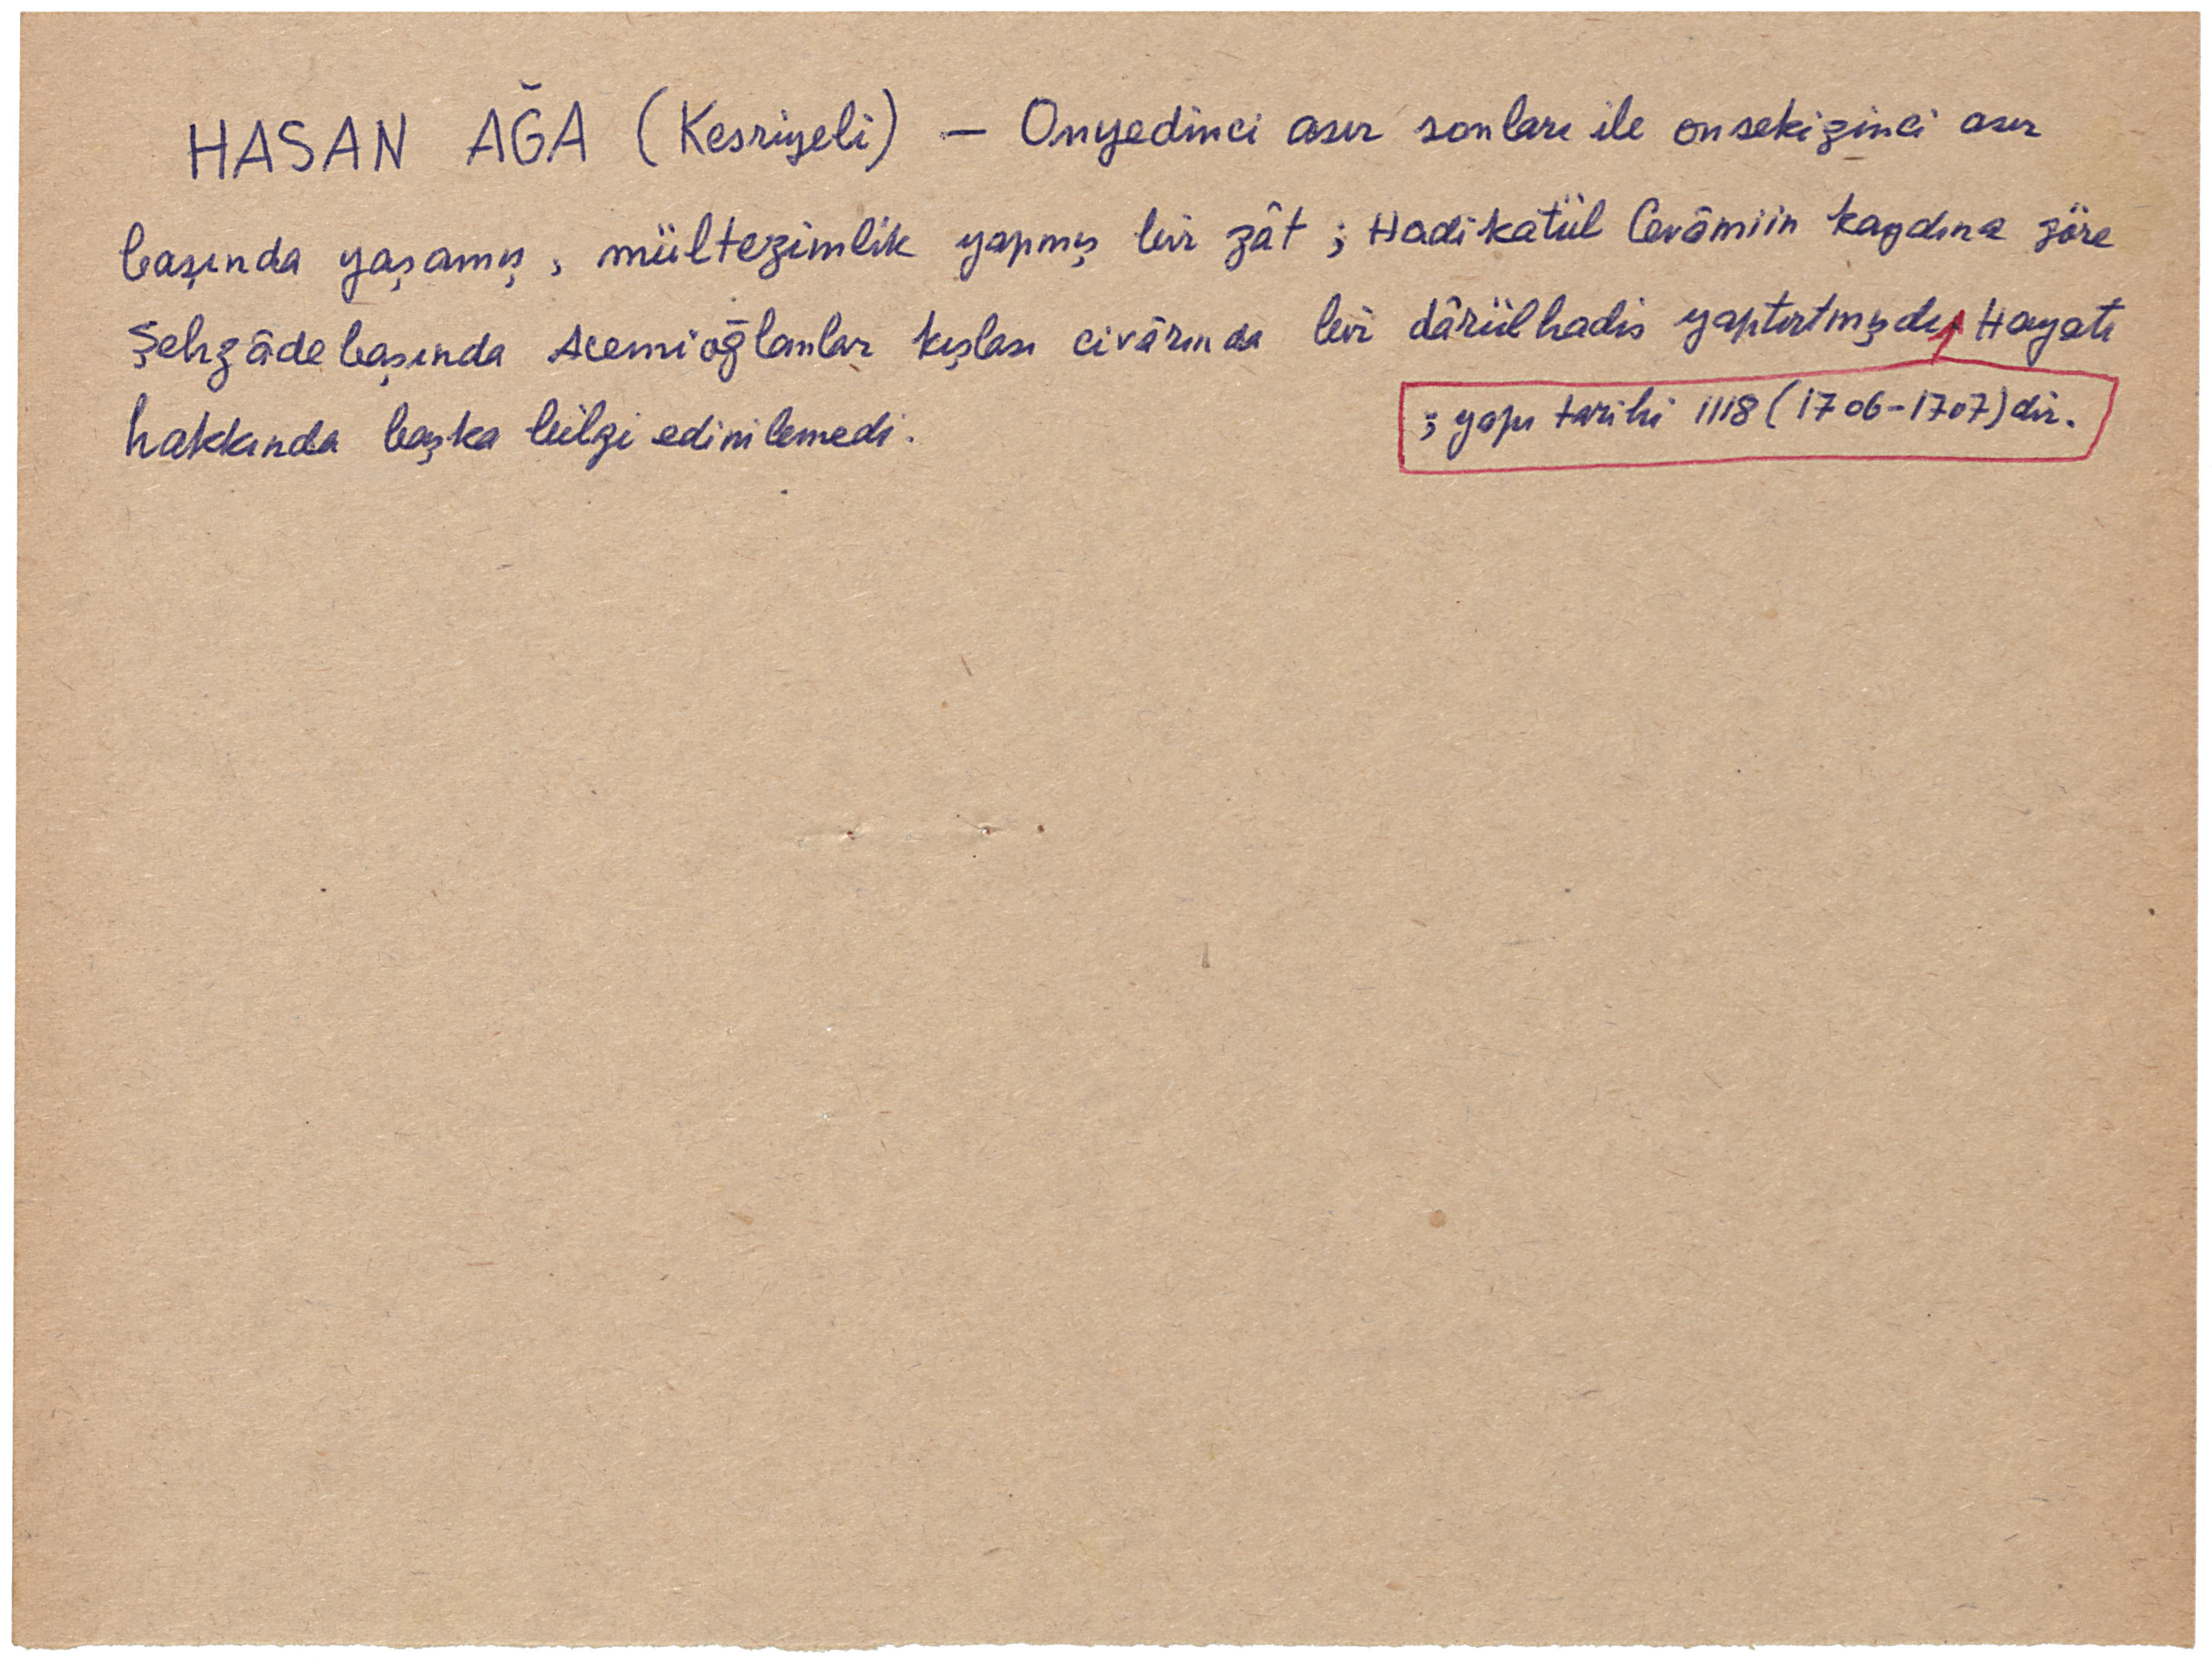 HASAN AĞA (Kesriyeli) — Onyedinci asır sonları ile onsekizinci asır
başında yaşamış, mültezimlik yapmış bir zât ; Hadikatül Cevâmiin kaydına göre
Şehzâdebaşında Acemioğlanlar kışlası civârında bir dârülhadis yaptırtmışdı. Hayatı
; yapı tarihi 1118 (1706-1707) dir.
hakkında başka bilgi edinilemedi.